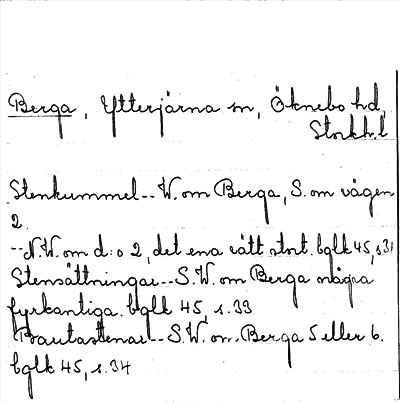 Berga, Ytterjärna sn, Öknebo hd,
Stockh.l
Stenkummel-- W. om Berga, S. om vägen
2.
--N.W. om d:o 2, det ena rätt stort. bglk 45, s.31
Stensättningar--S.W. om Berga några
fyrkantiga. bglk 45, s.33
Bautastenar--S.W. om Berga 5 eller 6.
bglk 45, s.34